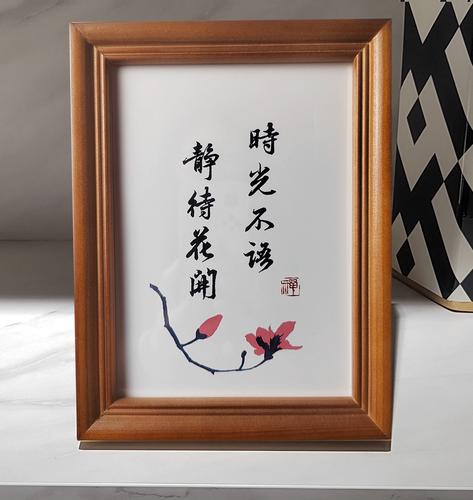 時光不語
靜待花開
禪